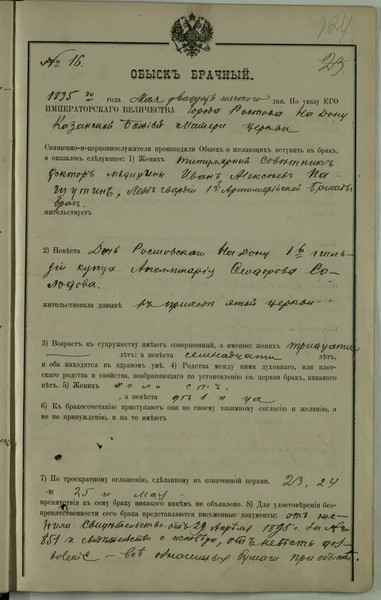 № 16.
23
ОБЫСКЪ БРАЧНЫЙ.
1895 го года Мая двадцать шестого дня. По указу ЕГО
ИМПЕРАТОРСКАГО ВЕЛИЧЕСТВА города Ростова На Дону
Казанской Божіей Матери церкви
Священно-и-церковнослужители производили Обыскъ о желающихъ вступить въ бракъ,
и оказалось слѣдующее: 1) Женихъ титулярный Совѣтникъ
докторъ медицины Иванъ Алексѣевъ Па-
шутинъ, Лейбъ гвардіи 1й Артиллерійской Бригады
врач.
жительствуетъ
2) Невѣста Дочь Ростовскаго На Дону 1й гиль-
діи купца Апполинарія Ѳеодорова Со-
лодова.
жительствовала донынѣ въ приходѣ этой церкви
3) Возрастъ къ супружеству имѣютъ совершенный, а именно: женихъ тридцати
лѣтъ: а невѣста семнадцати лѣтъ,
и оба находятся въ здравомъ умѣ. 4) Родства между ними духовнаго, или плот-
скаго родства и свойства, возбраняющаго по установленію св. церкви бракъ, никакого
нѣтъ. 5) Женихъ холостъ,
, а невѣста дѣвица
6) Къ бракосочетанію приступаютъ они по своему взаимному согласію и желанію, а
не по принужденію, и на то имѣютъ
7) По троекратному оглашенію, сдѣланному въ означенной церкви, 23, 24
и 25 и Мая
препятствія къ сему браку никакого никѣмъ не объявлено. 8) Для удостовѣренія без-
препятственности сего брака представляются письменные документы: отъ же-
ниха Свидѣтельство отъ 29 Апрѣля 1895 г. за №
851 и свидѣтельство о исповѣди, отъ невѣсты до-
все бумаги при обыскѣ.